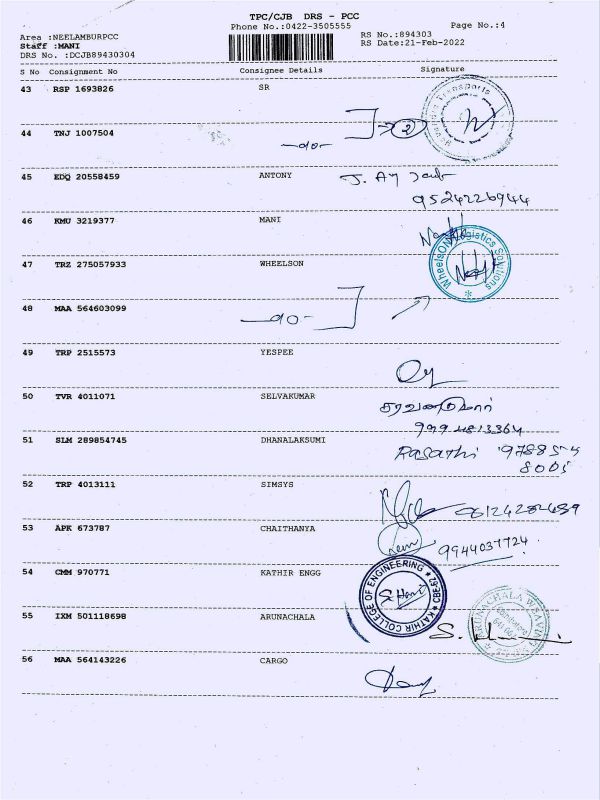 TPC/CJB DRS - PCC
Phone No.:0422-3505555 Page No.:4
Area :NEELAMBURPCC RS No.:894303
Staff :MANI RS Date:21-Feb-2022
DRS No. :DCJB89430304
S No Consignment No Consignee Details Signature
43 RSP 1693826 SR
44 TNJ 1007504 2
-do-
45 EDQ 20558459 ANTONY
9524226944
46 KMU 3219377 MANI
47 TRZ 275057933 WHEELSON
WheelsON Logistics Solutions
48 MAA 564603099 -do-
49 TRP 2515573 YESPEE
50 TVR 4011071 SELVAKUMAR சரவணகுமார்
9994813364
51 SLM 289854745 DHANALAKSUMI Rasathi 978855
8005
52 TRP 4013111 SIMSYS
53 APK 673787 CHAITHANYA 9944037724
54 CMM 970771 KATHIR ENGG
KATHIR COLLEGE OF ENGINEERING CBE-62
55 IXM 501118698 ARUNACHALA
ARUNACHALA
56 MAA 564143226 CARGO